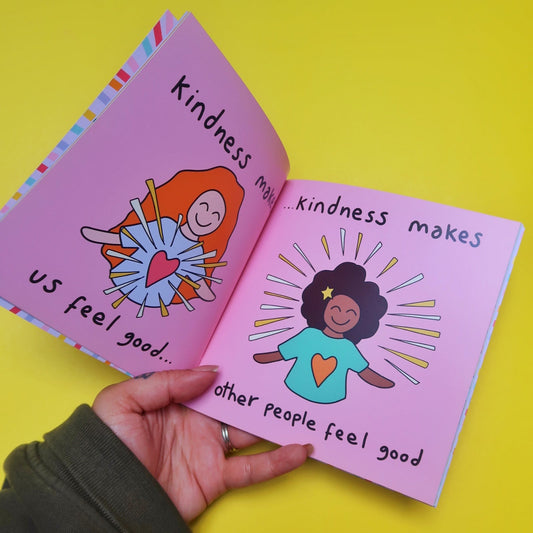 Kindness makes
us feel good...
...kindness makes
other people feel good